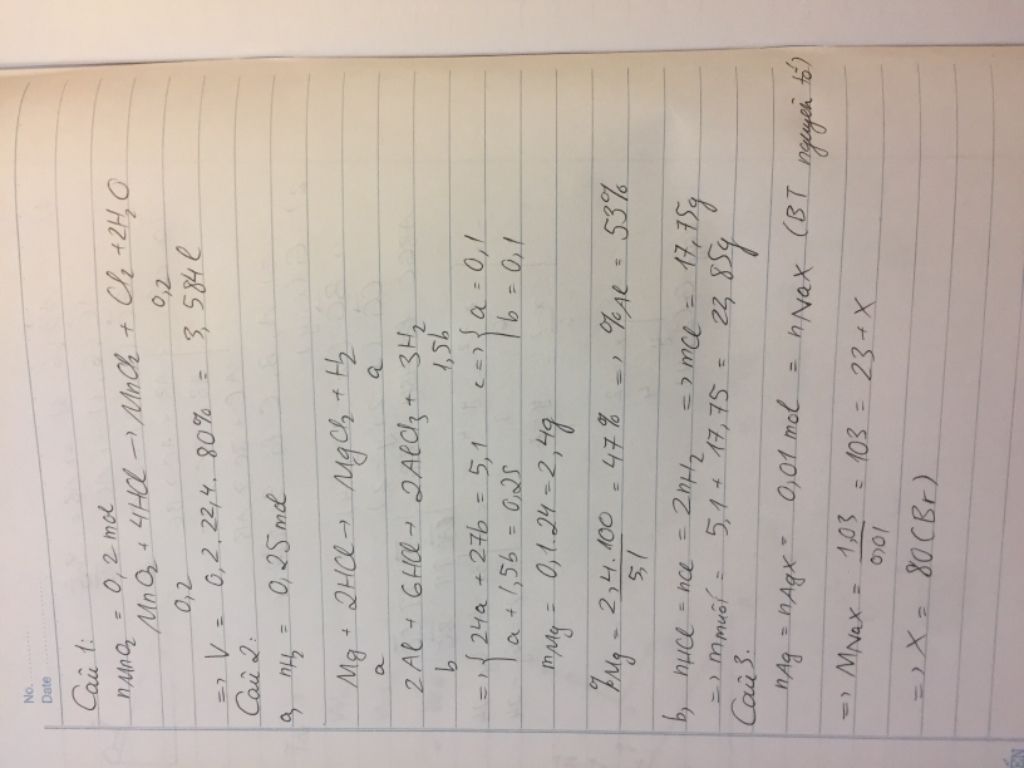 No.
Date
Câu 1:
nMnO₂ = 0,2 mol
MnO₂ + 4HCl → MnCl₂ + Cl₂ + 2H₂O
0,2 0,2
=> V = 0,2.22,4.80% = 3,584 l
Câu 2:
a, nH₂ = 0,25 mol
Mg + 2HCl → MgCl₂ + H₂
a a
2Al + 6HCl → 2AlCl₃ + 3H₂
b 1,5b
=> { 24a + 27b = 5,1 <=> { a = 0,1
{ a + 1,5b = 0,25 { b = 0,1
mMg = 0,1.24 = 2,4g
%Mg = 2,4.100 / 5,1 = 47% => %Al = 53%
b, nHCl = nCl = 2nH₂ => mCl = 17,75g
=> m muối = 5,1 + 17,75 = 22,85g
Câu 3.
nAg = nAgX = 0,01 mol = nNaX (BT nguyên tố)
=> MNaX = 1,03 / 0,01 = 103 = 23 + X
=> X = 80 (Br)